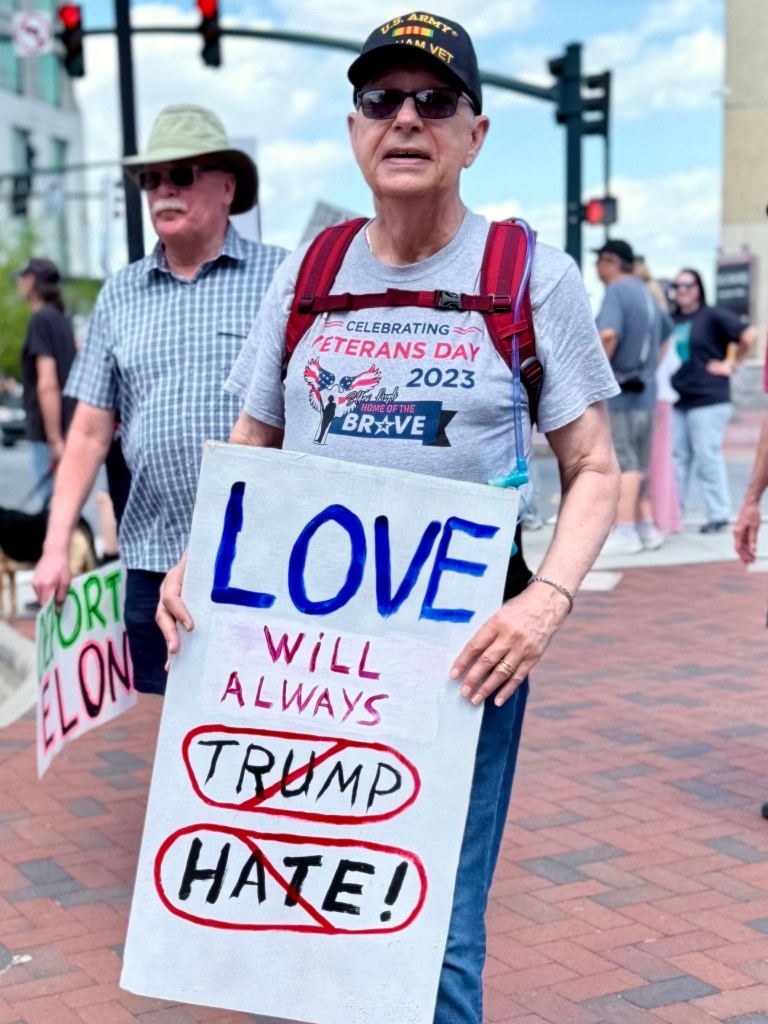 U.S. ARMY
NAM VET
CELEBRATING
VETERANS DAY
2023
HOME OF THE
BRAVE
LOVE
WiLL
ALWAYS
TRUMP
HATE!
DEPORT
ELON